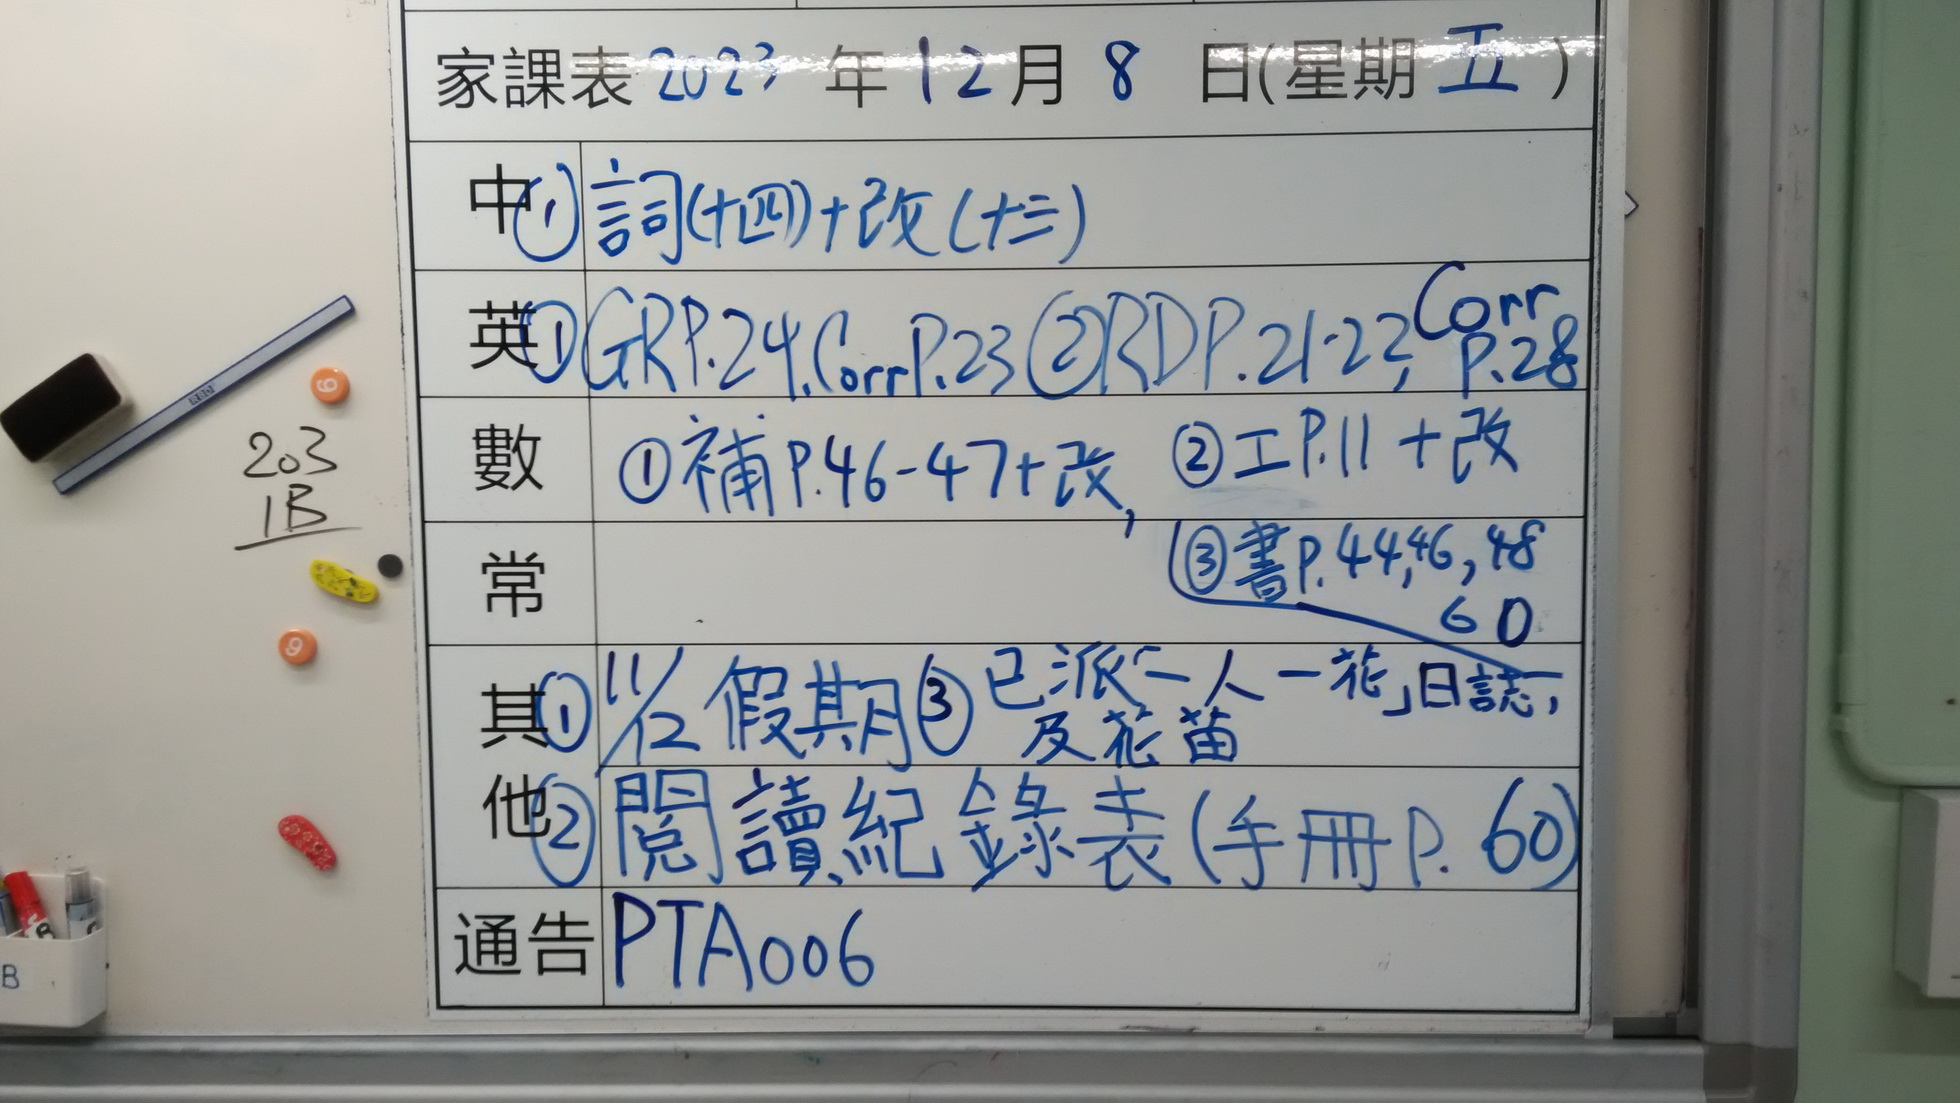 家課表 2023 年 12 月 8 日(星期 五)
中 ① 詞(十四)+改(十三)
英 ① GR P.24, Corr P.23 ② RD P.21-22, Corr P.28
數 ① 補 P.46-47+改, ② 工 P.11 + 改
常
③ 書 P.44,46,48
60
其他
① 11/12 假期 ③ 已派「一人一花」日誌,
及花苗
② 閱讀紀錄表(手冊 P. 60)
通告 PTA006
203
1B
6
9
B